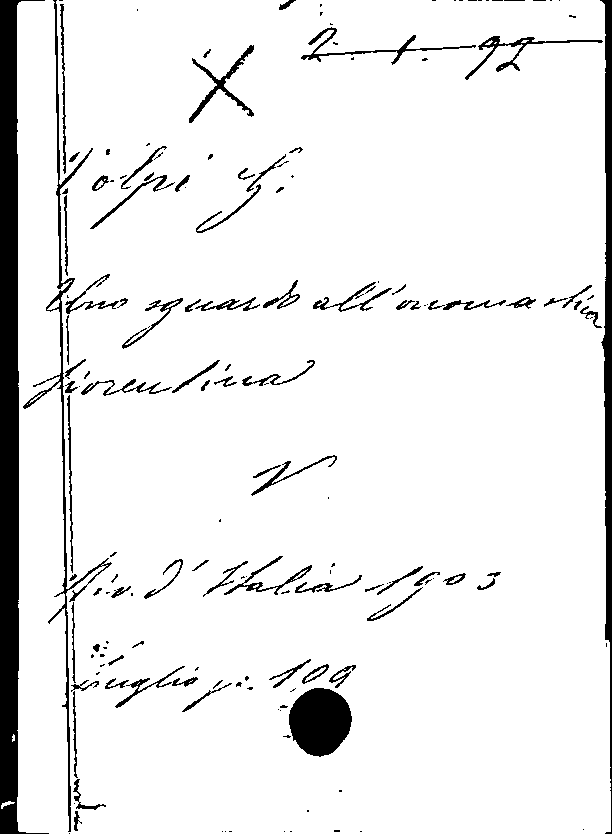 2. 1. 92
X
Volpi G.
Uno sguardo all'onomastica
fiorentina
V
Riv. d'Italia 1903
Luglio p. 109